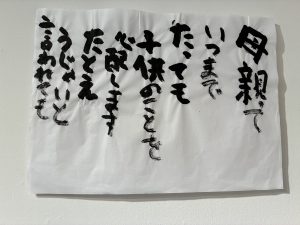 母親って
いつまで
たっても
子供のことを
心配します
たとえ
うじゃいと
言われても